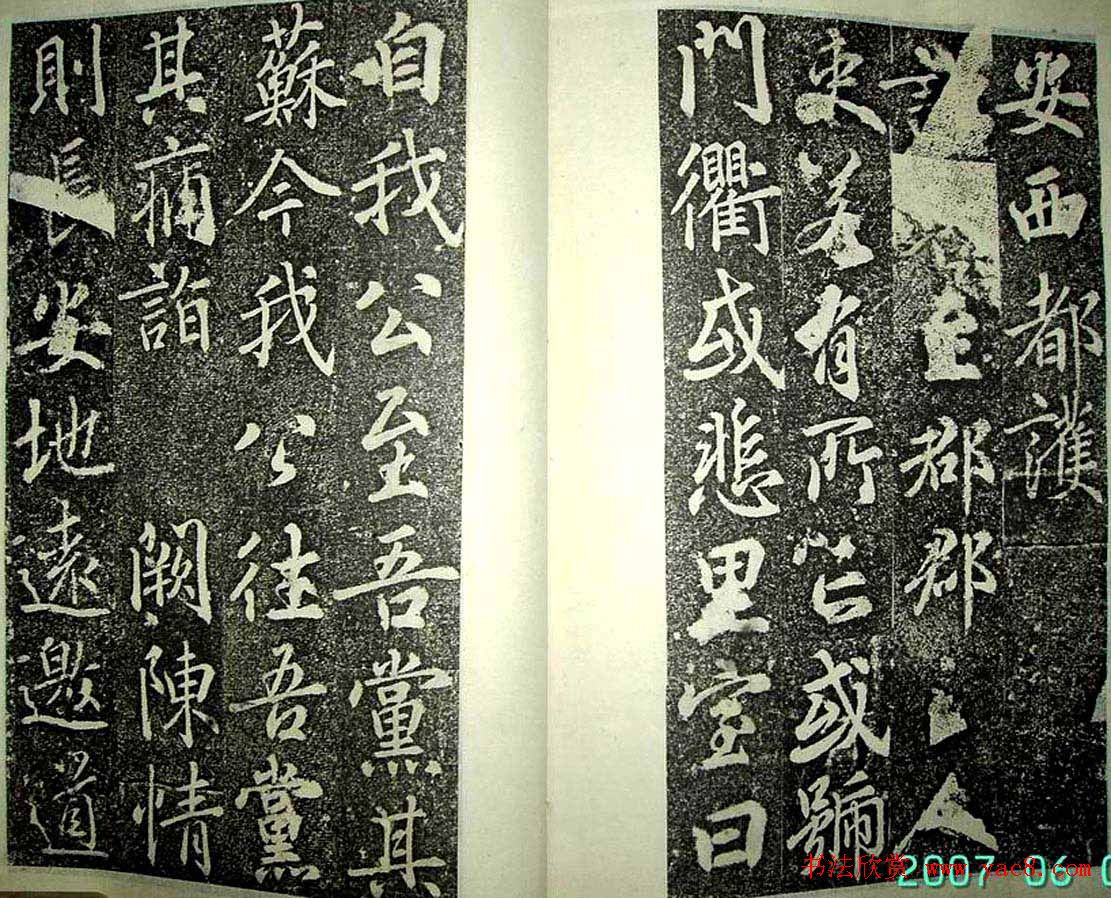 安西都護
詔至郡郡人
吏若有所亡或號
門衢或悲里室曰
自我公至吾黨其
蘇今我公往吾黨
其痡詣闕陳情
則長安地遠邀道
书法欣赏 www.yac8.com
2007 06 0